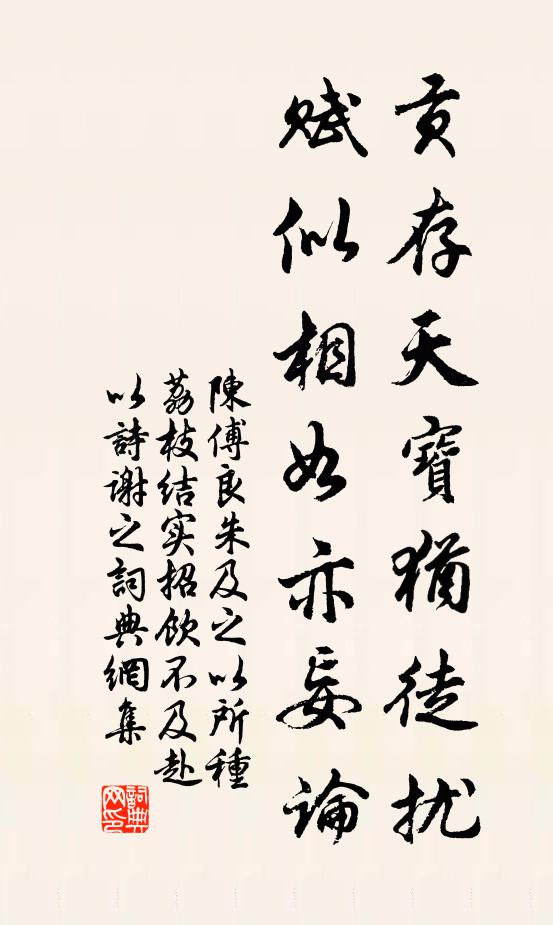 貢存天寶猶徒扰
賦似相如亦妄論
陳傅良朱及之以所種
荔枝结实招飲不及赴
以詩谢之詞典網集
詞典网印